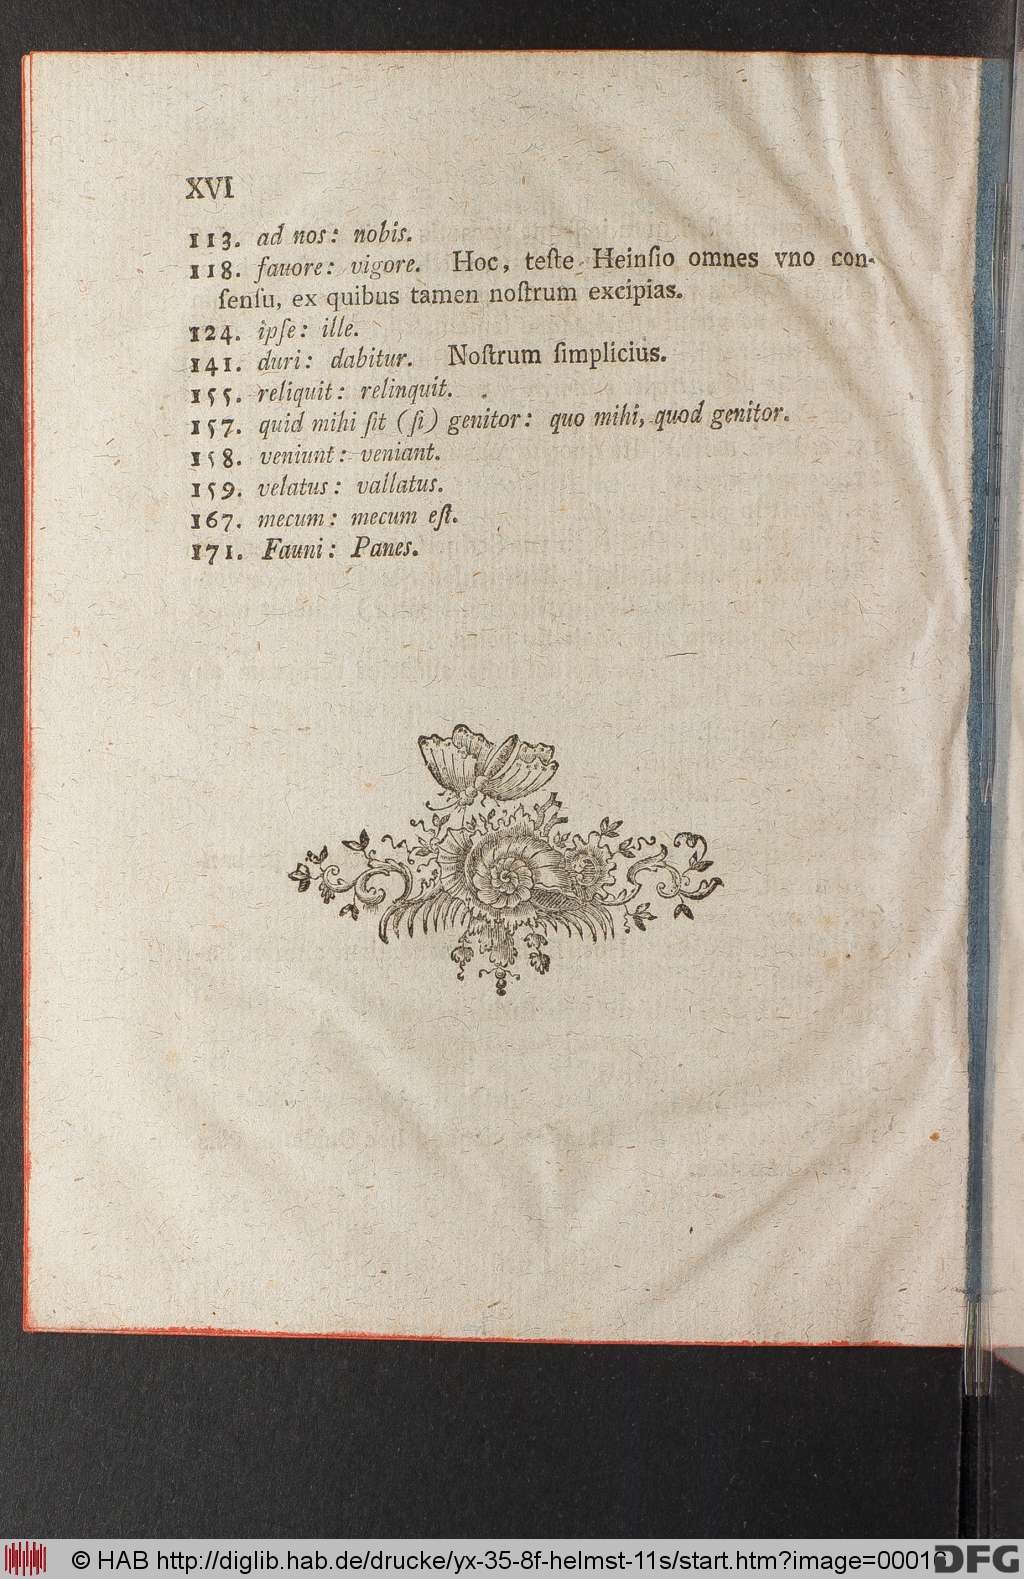 XVI
113. ad nos: nobis.
118. fauore: vigore. Hoc, teſte Heinſio omnes vno con-
ſenſu, ex quibus tamen noſtrum excipias.
124. ipſe: ille.
141. duri: dabitur. Noſtrum ſimplicius.
155. reliquit: relinquit.
157. quid mihi ſit (ſi) genitor: quo mihi, quod genitor.
158. veniunt: veniant.
159. velatus: vallatus.
167. mecum: mecum eſt.
171. Fauni: Panes.
© HAB http://diglib.hab.de/drucke/yx-35-8f-helmst-11s/start.htm?image=00016
DFG